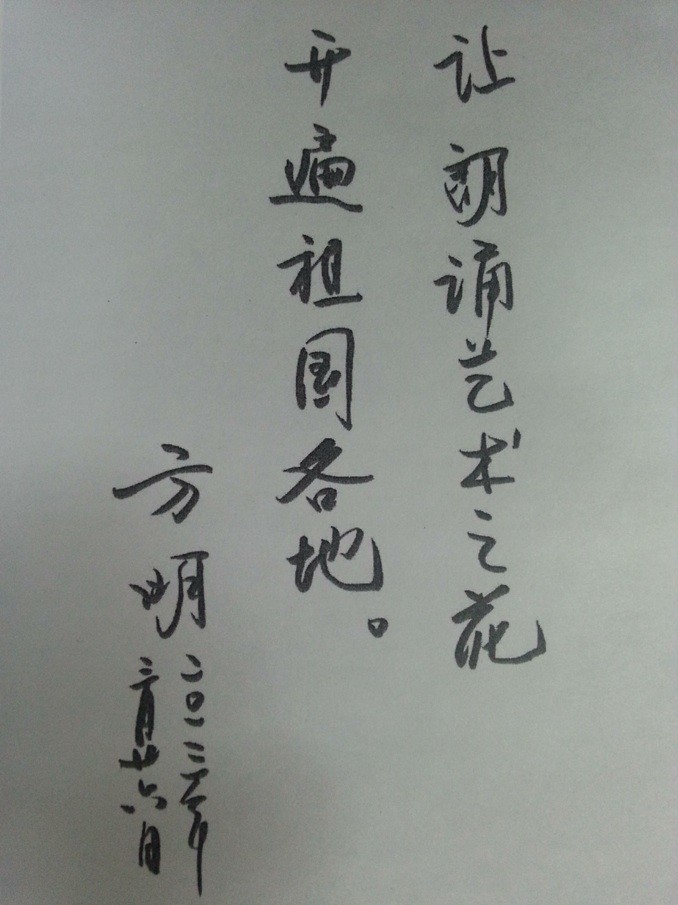 让朗诵艺术之花
开遍祖国各地。
方明
二〇一二年
三月廿六日